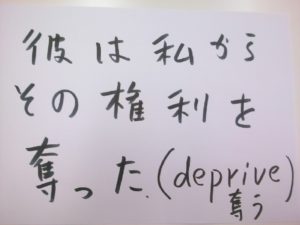 彼は私から
その権利を
奪った.(deprive)
奪う